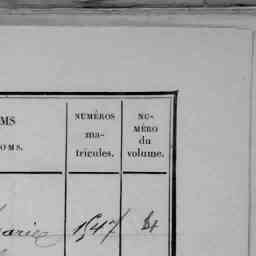 MS
OMS.
NUMÉROS
ma-
tricules.
NU-
MÉRO
du
volume.
arie 1547